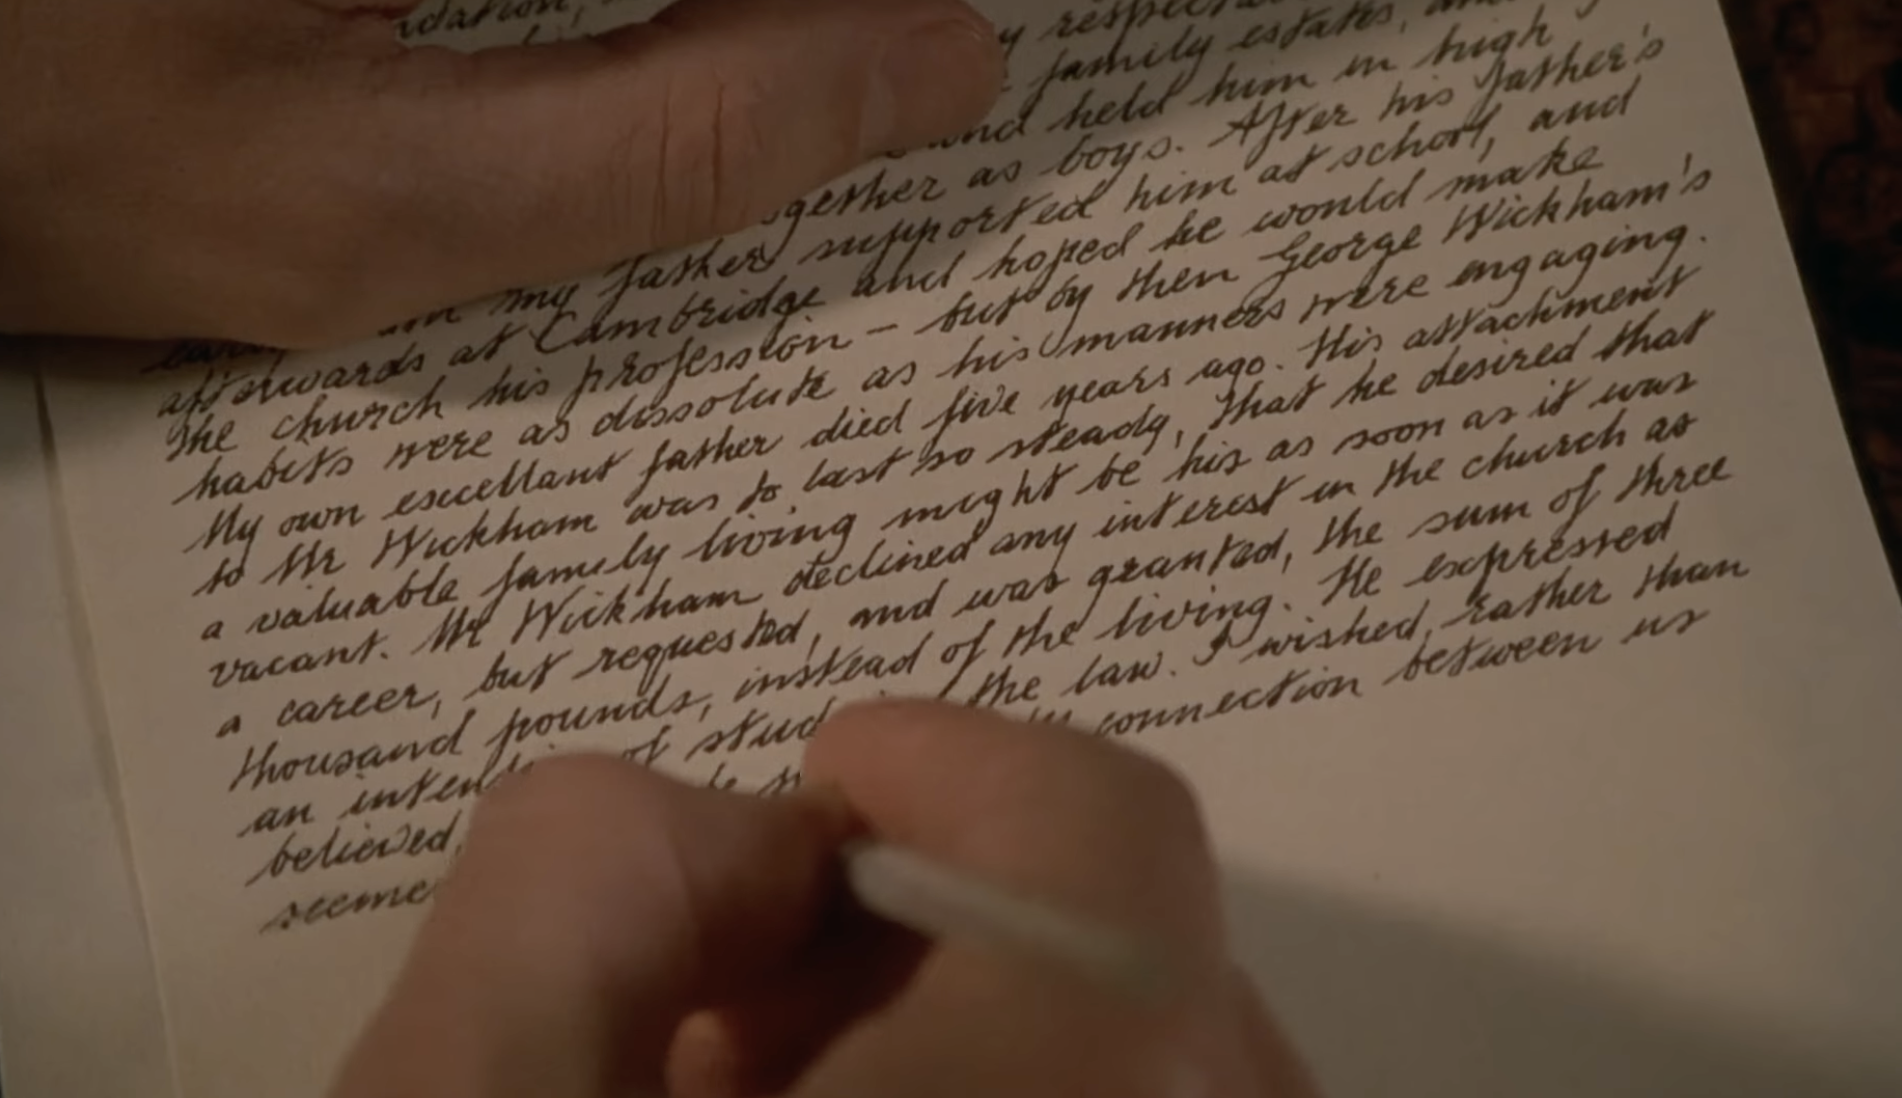 family estates, and
and held him in high
together as boys. After his father's
my father supported him at school, and
afterwards at Cambridge and hoped he would make
the church his profession – but by then George Wickham's
habits were as dissolute as his manners were engaging.
My own excellant father died five years ago. His attachment
to Mr Wickham was to last so steady, that he desired that
a valuable family living might be his as soon as it was
vacant. Mr Wickham declined any interest in the church as
a career, but requested, and was granted, the sum of three
thousand pounds, instead of the living. He expressed
an of the law. I wished, rather than
believed, connection between us